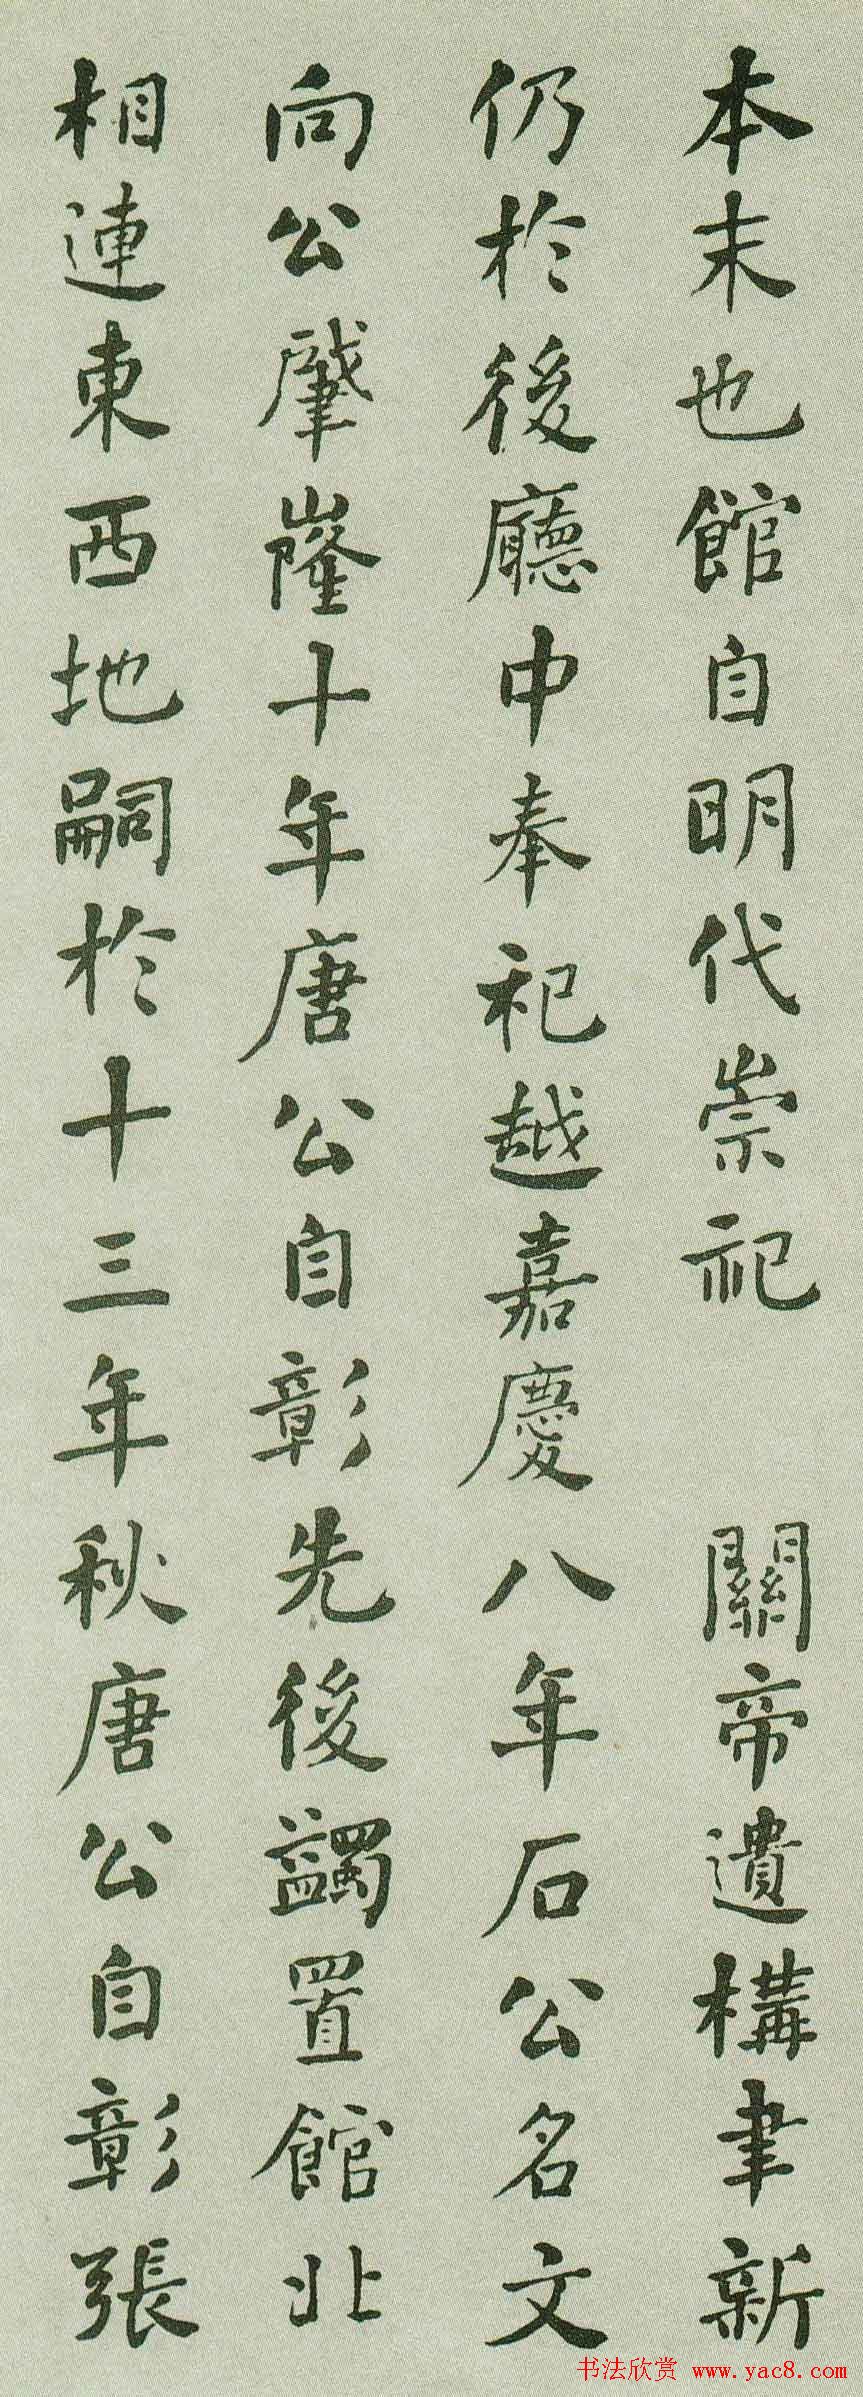 本末也館自明代崇祀 關帝遺構聿新
仍於後廳中奉祀越嘉慶八年石公名文
向公肇嶐十年唐公自彰先後蠲置館北
相連東西地嗣於十三年秋唐公自彰張
书法欣赏 www.yac8.com